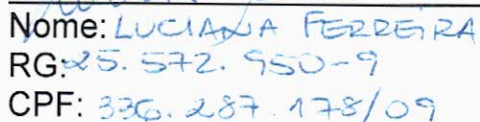 Nome: LUCIANA FERREIRA
RG: 25.572.950-9
CPF: 336.287.178/09